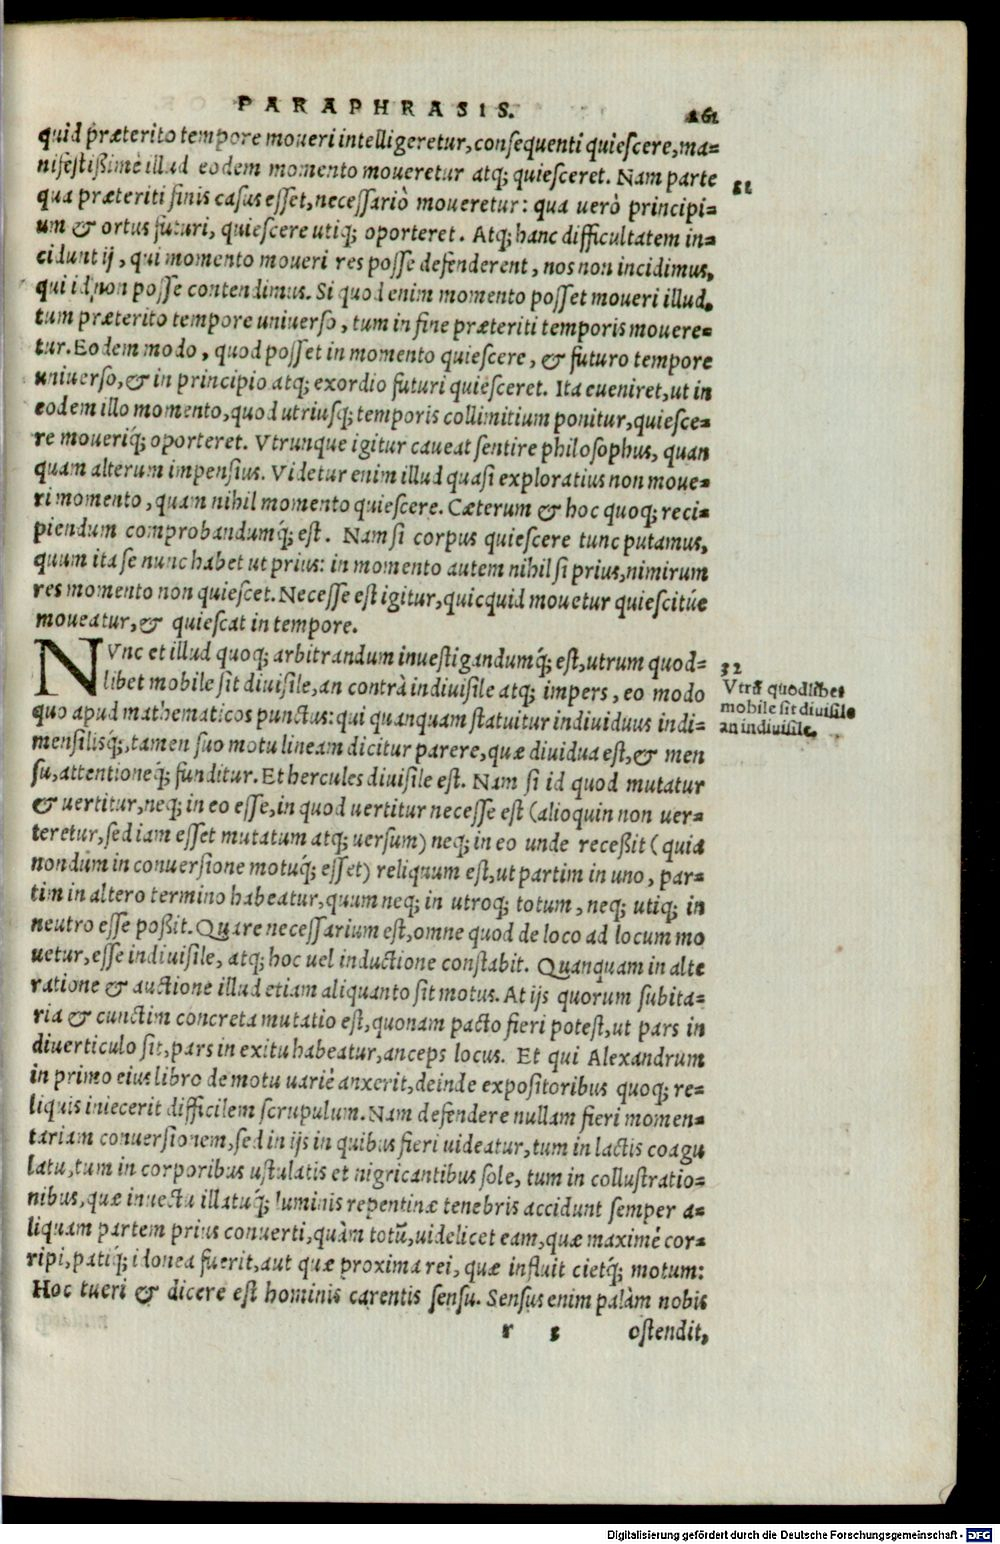 PARAPHRASIS. 261
quid præterito tempore moueri intelligeretur, consequenti quiescere, ma=
nifestißime illud eodem momento moueretur atq; quiesceret. Nam parte
51
qua præteriti finis casus esset, necessariò moueretur: qua uerò principi=
um & ortus futuri, quiescere utiq; oporteret. Atq; hanc difficultatem in=
cidunt ij, qui momento moueri res posse defenderent, nos non incidimus,
qui id non posse contendimus. Si quod enim momento posset moueri illud,
tum præterito tempore uniuerso, tum in fine præteriti temporis mouere=
tur. Eodem modo, quod posset in momento quiescere, & futuro tempore
uniuerso, & in principio atq; exordio futuri quiesceret. Ita eueniret, ut in
eodem illo momento, quod utriusq; temporis collimitium ponitur, quiesce=
re moueriq́; oporteret. Vtrunque igitur caueat sentire philosophus, quan
quam alterum impensius. Videtur enim illud quasi exploratius non moue=
ri momento, quam nihil momento quiescere. Cæterum & hoc quoq; reci=
piendum comprobandumq́; est. Nam si corpus quiescere tunc putamus,
quum ita se nunc habet ut prius: in momento autem nihil si prius, nimirum
res momento non quiescet. Necesse est igitur, quicquid mouetur quiescitúe
moueatur, & quiescat in tempore.
NVnc et illud quoq; arbitrandum inuestigandumq́; est, utrum quod=
32
libet mobile sit diuisile, an contrà indiuisile atq; impers, eo modo
Vtrũ quodlibet
mobile sit diuisile
an indiuisile.
quo apud mathematicos punctus: qui quanquam statuitur indiuiduus indi=
mensilisq́;, tamen suo motu lineam dicitur parere, quæ diuidua est, & men
su, attentioneq́; funditur. Et hercules diuisile est. Nam si id quod mutatur
& uertitur, neq; in eo esse, in quod uertitur necesse est (alioquin non uer=
teretur, sed iam esset mutatum atq; uersum) neq; in eo unde receßit (quia
nondum in conuersione motuq́; esset) reliquum est, ut partim in uno, par=
tim in altero termino habeatur, quum neq; in utroq; totum, neq; utiq; in
neutro esse poßit. Quare necessarium est, omne quod de loco ad locum mo
uetur, esse indiuisile, atq; hoc uel inductione constabit. Quanquam in alte
ratione & auctione illud etiam aliquanto sit motus. At ijs quorum subita=
ria & cunctim concreta mutatio est, quonam pacto fieri potest, ut pars in
diuerticulo sit, pars in exitu habeatur, anceps locus. Et qui Alexandrum
in primo eius libro de motu uariè anxerit, deinde expositoribus quoq; re=
liquis iniecerit difficilem scrupulum. Nam defendere nullam fieri momen=
tariam conuersionem, sed in ijs in quibus fieri uideatur, tum in lactis coagu
latu, tum in corporibus ustulatis et nigricantibus sole, tum in collustratio=
nibus, quæ inuectu illatuq́; luminis repentinæ tenebris accidunt semper a=
liquam partem prius conuerti, quàm totũ, uidelicet eam, quæ maximè cor=
ripi, patiq́; idonea fuerit, aut quæ proxima rei, quæ influit cietq́; motum:
Hoc tueri & dicere est hominis carentis sensu. Sensus enim palàm nobis
r 5 ostendit,
Digitalisierung gefördert durch die Deutsche Forschungsgemeinschaft - DFG